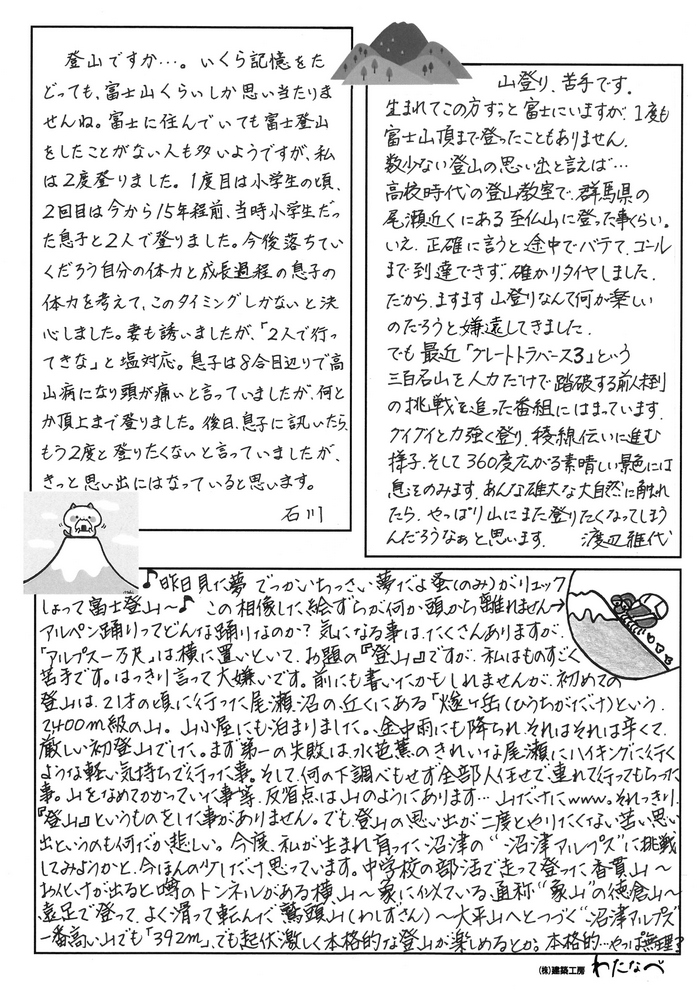 登山ですか…。いくら記憶をた
どっても、富士山くらいしか思い当たりま
せんね。富士に住んでいても富士登山
をしたことがない人も多いようですが、私
は2度登りました。1度目は小学生の頃、
2回目は今から15年程前、当時小学生だっ
た息子と2人で登りました。今後落ちてい
くだろう自分の体力と成長過程の息子の
体力を考えて、このタイミングしかないと決
心しました。妻も誘いましたが、「2人で行っ
てきな」と塩対応。息子は8合目辺りで高
山病になり頭が痛いと言っていましたが、何と
か頂上まで登りました。後日、息子に訊いたら、
もう2度と登りたくないと言っていましたが、
きっと思い出にはなっていると思います。
石川
山登り、苦手です。
生まれてこの方ずっと富士にいますが、1度も
富士山頂まで登ったこともありません。
数少ない登山の思い出と言えば…
高校時代の登山教室で、群馬県の
尾瀬近くにある至仏山に登った事くらい。
いえ、正確に言うと途中でバテて、ゴール
まで到達できず、確かリタイヤしました。
だから、ますます山登りなんて何が楽しい
のだろうと嫌遠してきました。
でも最近「グレートトラバース3」という
三百名山を人力だけで踏破する前人未到
の挑戦を追った番組にはまっています。
グイグイと力強く登り、稜線伝いに進む
様子、そして360度広がる素晴しい景色には
息をのみます。あんな雄大な大自然に触れ
たら、やっぱり山にまた登りたくなってしまう
んだろうなぁと思います。 渡辺雅代
♪昨日見た夢 でっかいちっさい夢だよ蚤(のみ)がリュック
しょって富士登山〜♪ この相像した絵ずらが何か頭から離れません→
アルペン踊りってどんな踊りなのか?気になる事は、たくさんありますが、
「アルプス一万尺」は横に置いといて、お題の『登山』ですが、私はものすごく
苦手です。はっきり言って大嫌いです。前にも書いたかもしれませんが、初めての
登山は、21才の頃に行った尾瀬沼の近くにある「燧ヶ岳(ひうちがだけ)という、
2,400m級の山。山小屋にも泊まりました。途中雨にも降られ、それはそれは辛くて、
厳しい初登山でした。まず第一の失敗は、水芭蕉のきれいな尾瀬にハイキングに行く
ような軽い気持ちで行った事。そして、何の下調べもせず全部人任せで、連れて行ってもらった
事。山をなめてかかっていた事等、反省点は山のようにあります…山だけにwww。それっきり、
『登山』というものをした事がありません。でも、登山の思い出が二度とやりたくない苦い思い
出というのも何だか悲しい。今度、私が生まれ育った沼津の“沼津アルプス”に挑戦
してみようかと、今ほんの少しだけ思っています。中学校の部活で走って登った香貫山〜
お化けが出ると噂のトンネルがある横山〜象に似ている、通称“象山”の徳倉山〜
遠足で登って、よく滑って転んだ鷲頭山(わしずさん)〜大平山へとつづく“沼津アルプス”
一番高い山でも「392m」、でも起伏激しく本格的な登山が楽しめるとか。本格的…やっぱ無理?
(株)建築工房 わたなべ